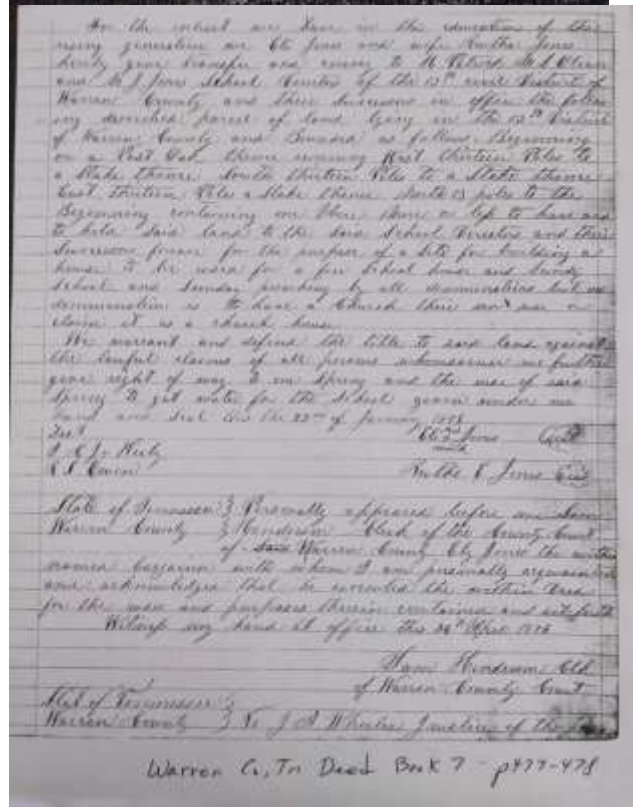 For the interest we have in the education of the
rising generation we Eli Jones and wife Jones
hereby give transfer and convey to
and Jones School Director of the 13th civil District of
Warren County and their successors in office the follow
ing described parcel of land lying in the 13th District
of Warren County and Bounded as follows Beginning
on a Post Oak thence running West thirteen Poles to
a Stake thence South thirteen Poles to a Stake thence
East thirteen Poles a Stake thence North 13 poles to the
Beginning containing one more or less to have and
to hold said land to the said School Director and their
Successors forever for the purpose of a Site for building a
house to be used for a free School house and Sunday
School and Sunday preaching by all denominations but no
denomination is to have a Church there nor use or
claim it as a church house
We warrant and defend the title to said land against
the lawful claims of all persons whomsoever we further
give right of way to our Spring and the use of said
Spring to get water for the School given under our
hand and seal this the 22nd of January
Test
Eli Jones Seal
Jones Seal
State of Tennessee } Personally appeared before me Sam
Warren County } Henderson Clerk of the County Court
of Warren County Eli Jones the within
named bargainor with whom I am personally acquainted
and acknowledged that he executed the within Deed
for the uses and purposes therein contained and set forth
Witness my hand at office this 24th April
Sam Henderson Clk
of Warren County Court
State of Tennessee }
Warren County } To J A Justice of the
Warren Co, Tn Deed Book 7 - p477-478